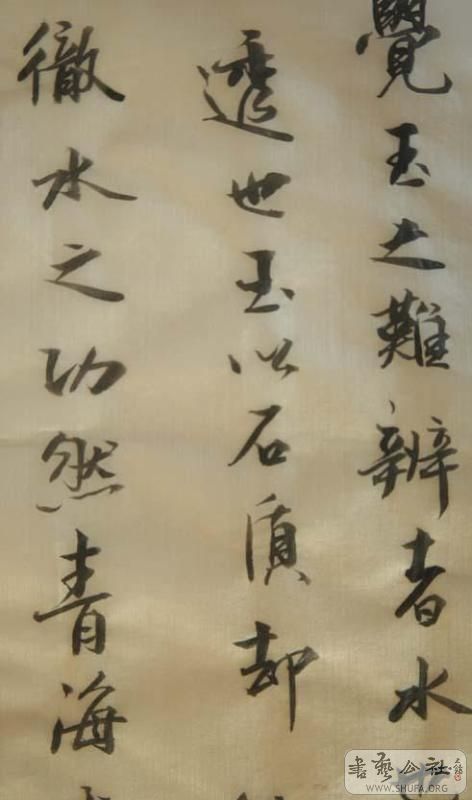 覺玉之難辨者水
透也玉以石質却
徹水之功然青海
書藝公社
WWW.SHUFA.ORG